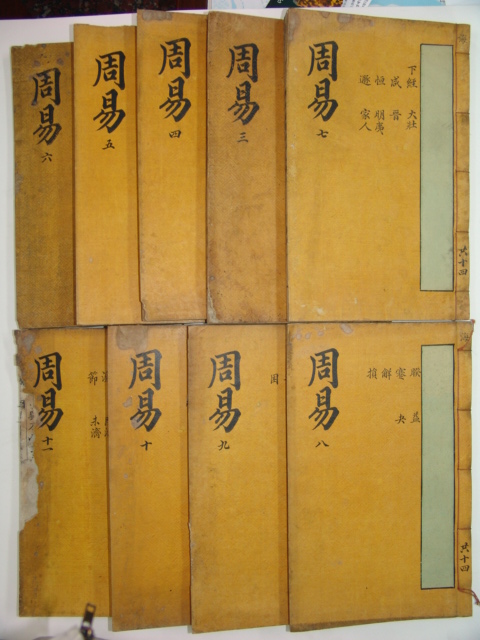 共十四
下經 大壯
咸 晉
恒 明夷
遯 家人
周易 七
周易 三
周易 四
周易 五
周易 六
共十四
睽 益
蹇 夬
解
損
周易 八
困
周易 九
周易 十
未濟
節
周易 十一